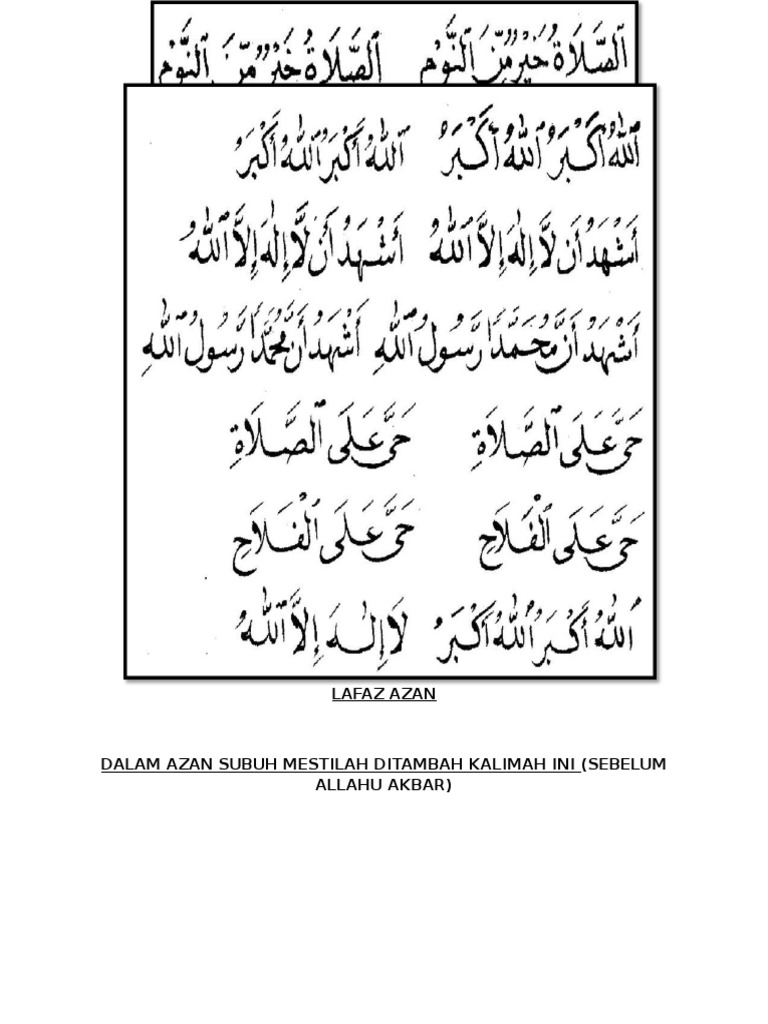 الصَّلَاةُ خَيْرٌ مِّنَ النَّوْمِ الصَّلَاةُ خَيْرٌ مِّنَ النَّوْمِ
اَللّٰهُ أَكْبَرُ اَللّٰهُ أَكْبَرُ اَللّٰهُ أَكْبَرُ اَللّٰهُ أَكْبَرُ
أَشْهَدُ أَن لَّا إِلٰهَ إِلَّا اللّٰهُ أَشْهَدُ أَن لَّا إِلٰهَ إِلَّا اللّٰهُ
أَشْهَدُ أَنَّ مُحَمَّدًا رَّسُولُ اللّٰهِ أَشْهَدُ أَنَّ مُحَمَّدًا رَّسُولُ اللّٰهِ
حَيَّ عَلَى الصَّلَاةِ حَيَّ عَلَى الصَّلَاةِ
حَيَّ عَلَى الْفَلَاحِ حَيَّ عَلَى الْفَلَاحِ
اَللّٰهُ أَكْبَرُ اَللّٰهُ أَكْبَرُ لَا إِلٰهَ إِلَّا اللّٰهُ
LAFAZ AZAN
DALAM AZAN SUBUH MESTILAH DITAMBAH KALIMAH INI (SEBELUM
ALLAHU AKBAR)